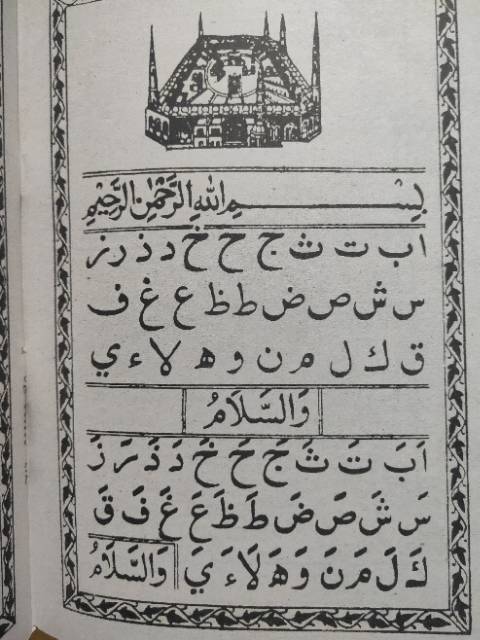 بِسْمِ اللهِ الرَّحْمٰنِ الرَّحِيْمِ
ا ب ت ث ج ح خ د ذ ر ز
س ش ص ض ط ظ ع غ ف
ق ك ل م ن و ه لا ء ي
وَالسَّلَامُ
اَ بَ تَ ثَ جَ حَ خَ دَ ذَ رَ زَ
سَ شَ صَ ضَ طَ ظَ عَ غَ فَ قَ
كَ لَ مَ نَ وَ هَ لَا ءَ يَ وَالسَّلَامُ